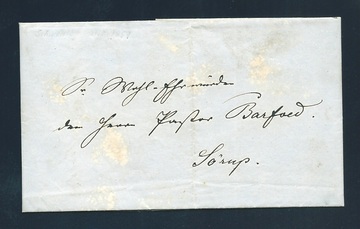 Sr. Wohl-Ehrwürden
dem Herrn Pastor Barfoed.
Sörup.